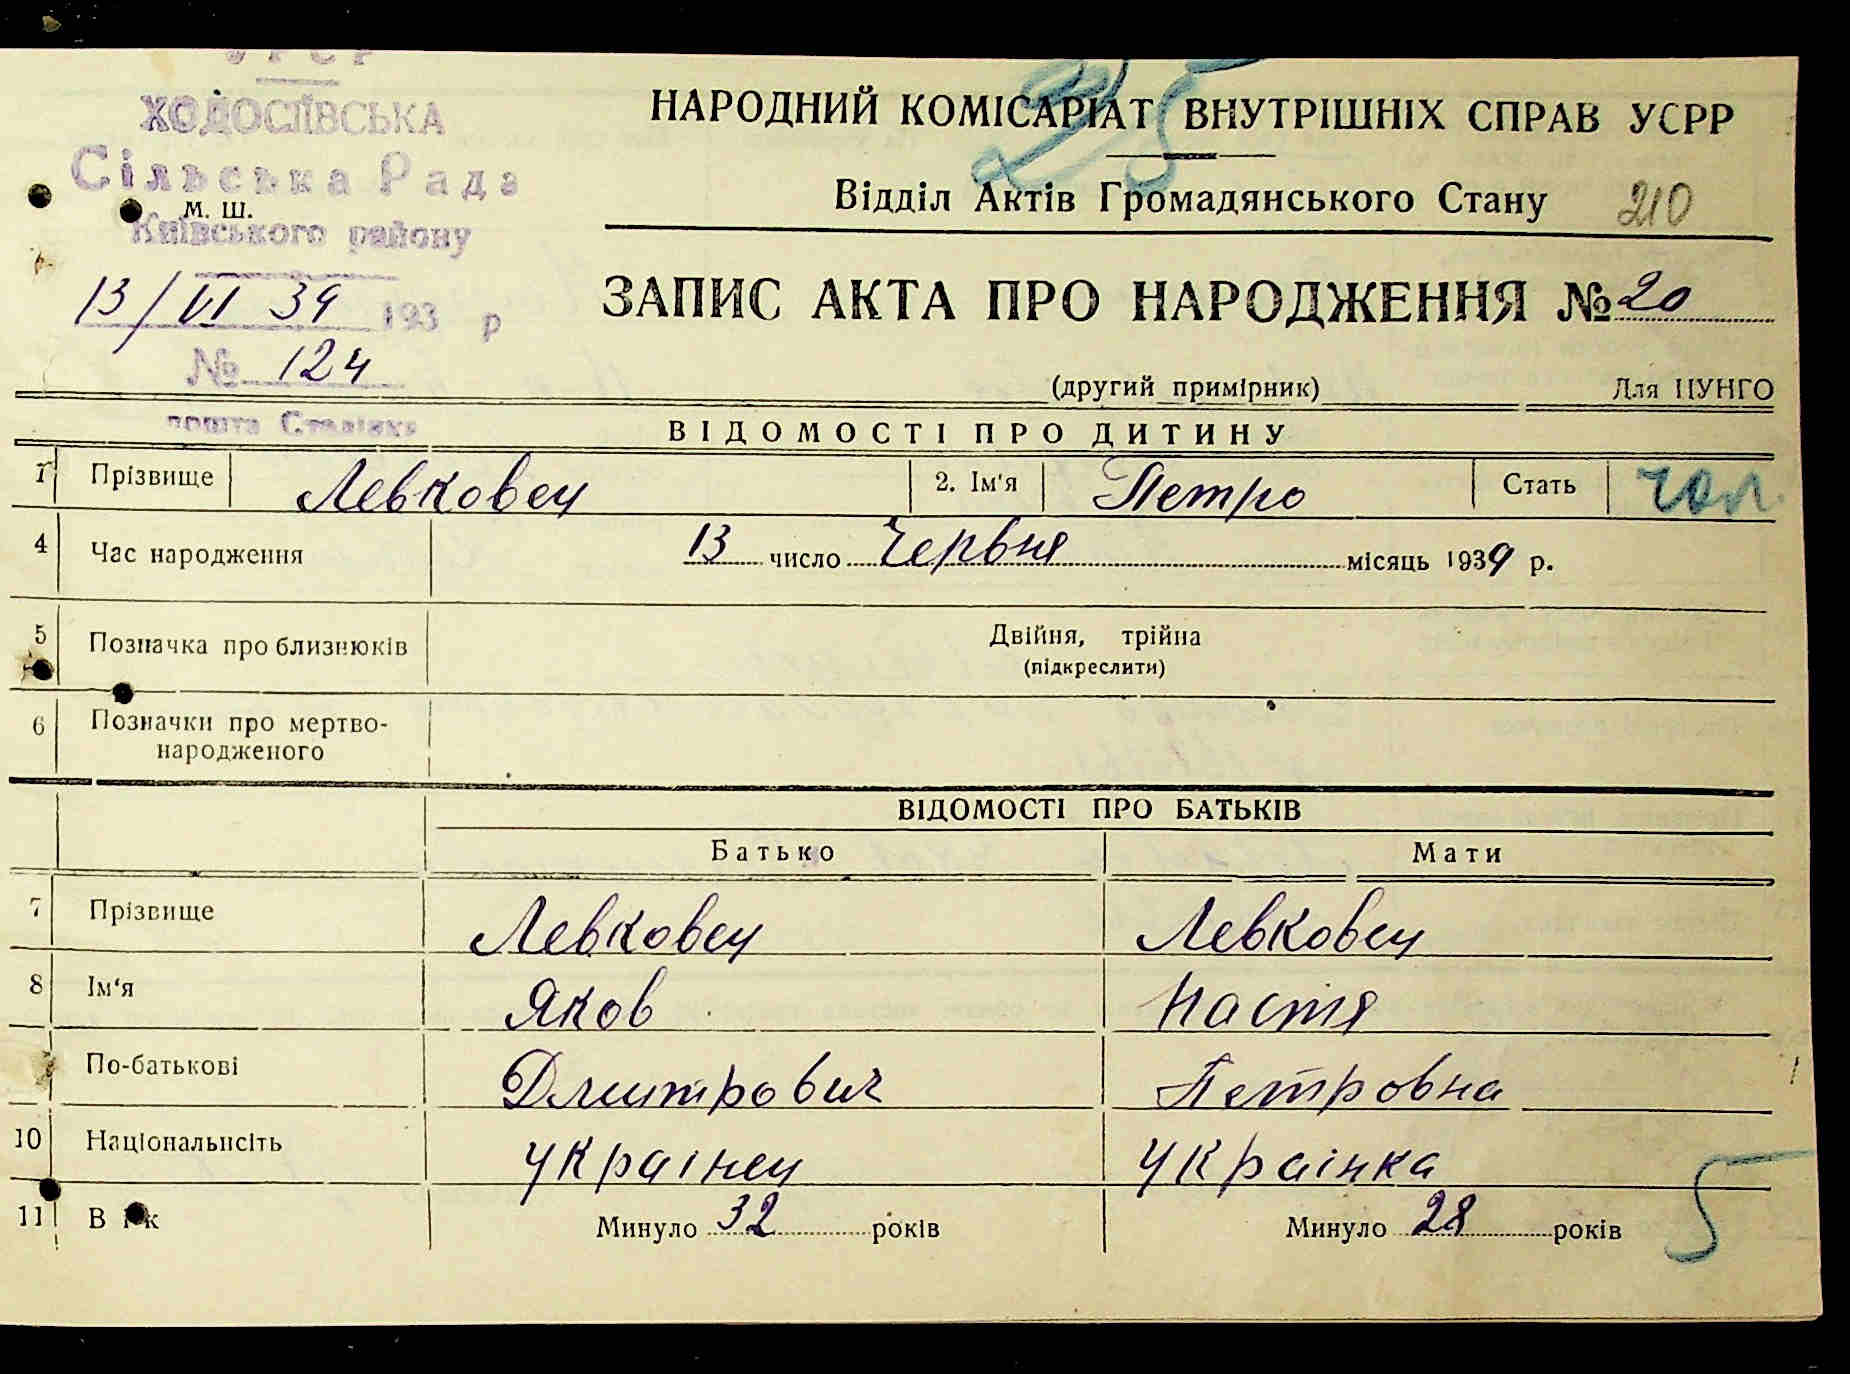 УРСР
ХОДОСІЇВСЬКА
Сільська Рада
м. ш.
Київського району
13/VI 39 193 р
№ 124
пошта Сталінка
25
НАРОДНИЙ КОМІСАРІАТ ВНУТРІШНІХ СПРАВ УСРР
Відділ Актів Громадянського Стану 210
ЗАПИС АКТА ПРО НАРОДЖЕННЯ № 20
(другий примірник) Для ЦУНГО
ВІДОМОСТІ ПРО ДИТИНУ
1 Прізвище Левковец 2. Ім'я Петро Стать чол.
4 Час народження 13 число Червня місяць 1939 р.
5 Позначка про близнюків Двійня, трійна
(підкреслити)
6 Позначки про мертво-
народженого
ВІДОМОСТІ ПРО БАТЬКІВ
Батько Мати
7 Прізвище Левковец Левковец
8 Ім'я Яков Настя
По-батькові Дмитрович Петровна
10 Національність украінец украінка
11 Вік Минуло 32 років Минуло 28 років
5